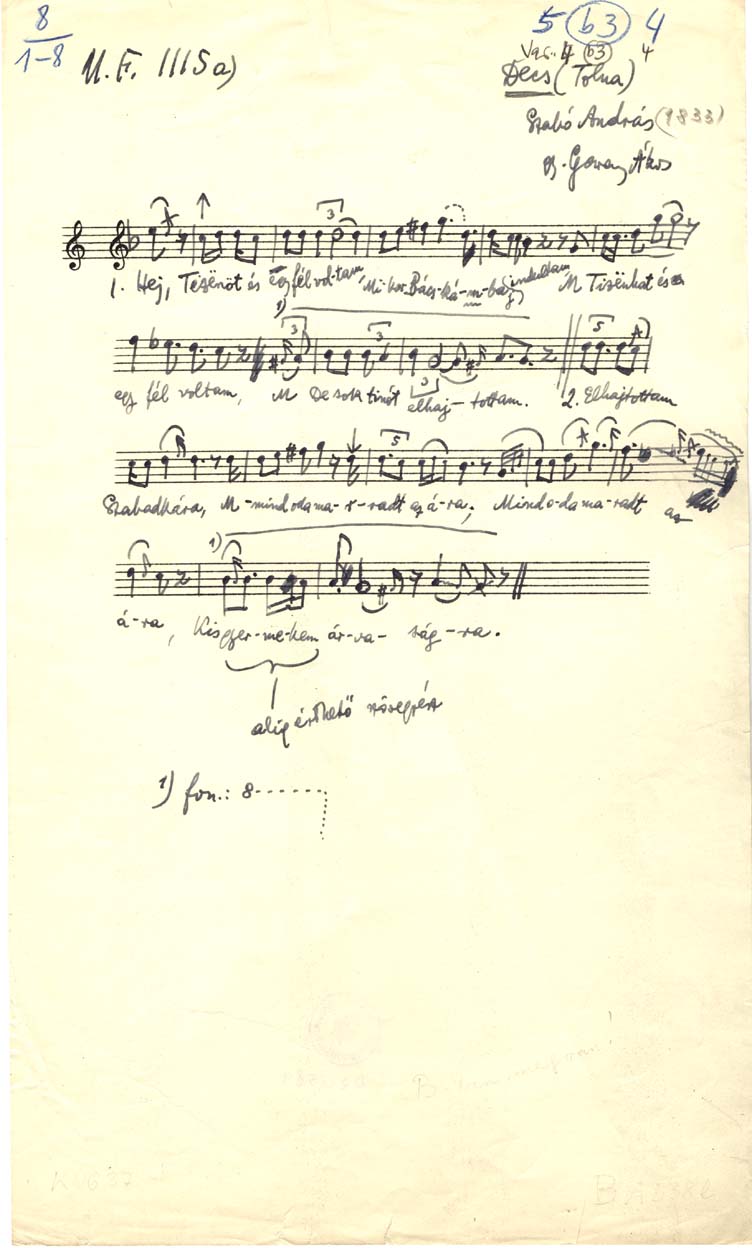 8
1-8
5 b3 4
M.F. 1115a)
Var. 4 b3 4
Decs (Tolna)
Szabó András (1833)
gy. Garay Ákos
1. Hej, Tézsënöt és égy fél voltam, Mikor Bács-ká-m-ba indultam M Tizënhat és
1)
egy fél voltam, M De sok tinót elhaj-tottam. 2. Elhajtottam
Szabadkára, M-mind oda ma-r-radt az á-ra; Mind o-da ma-radt az
1)
á-ra, Kisgyer-me-kem ár-va-ság-ra.
alig érthető szövegrész
1) fon.: 8